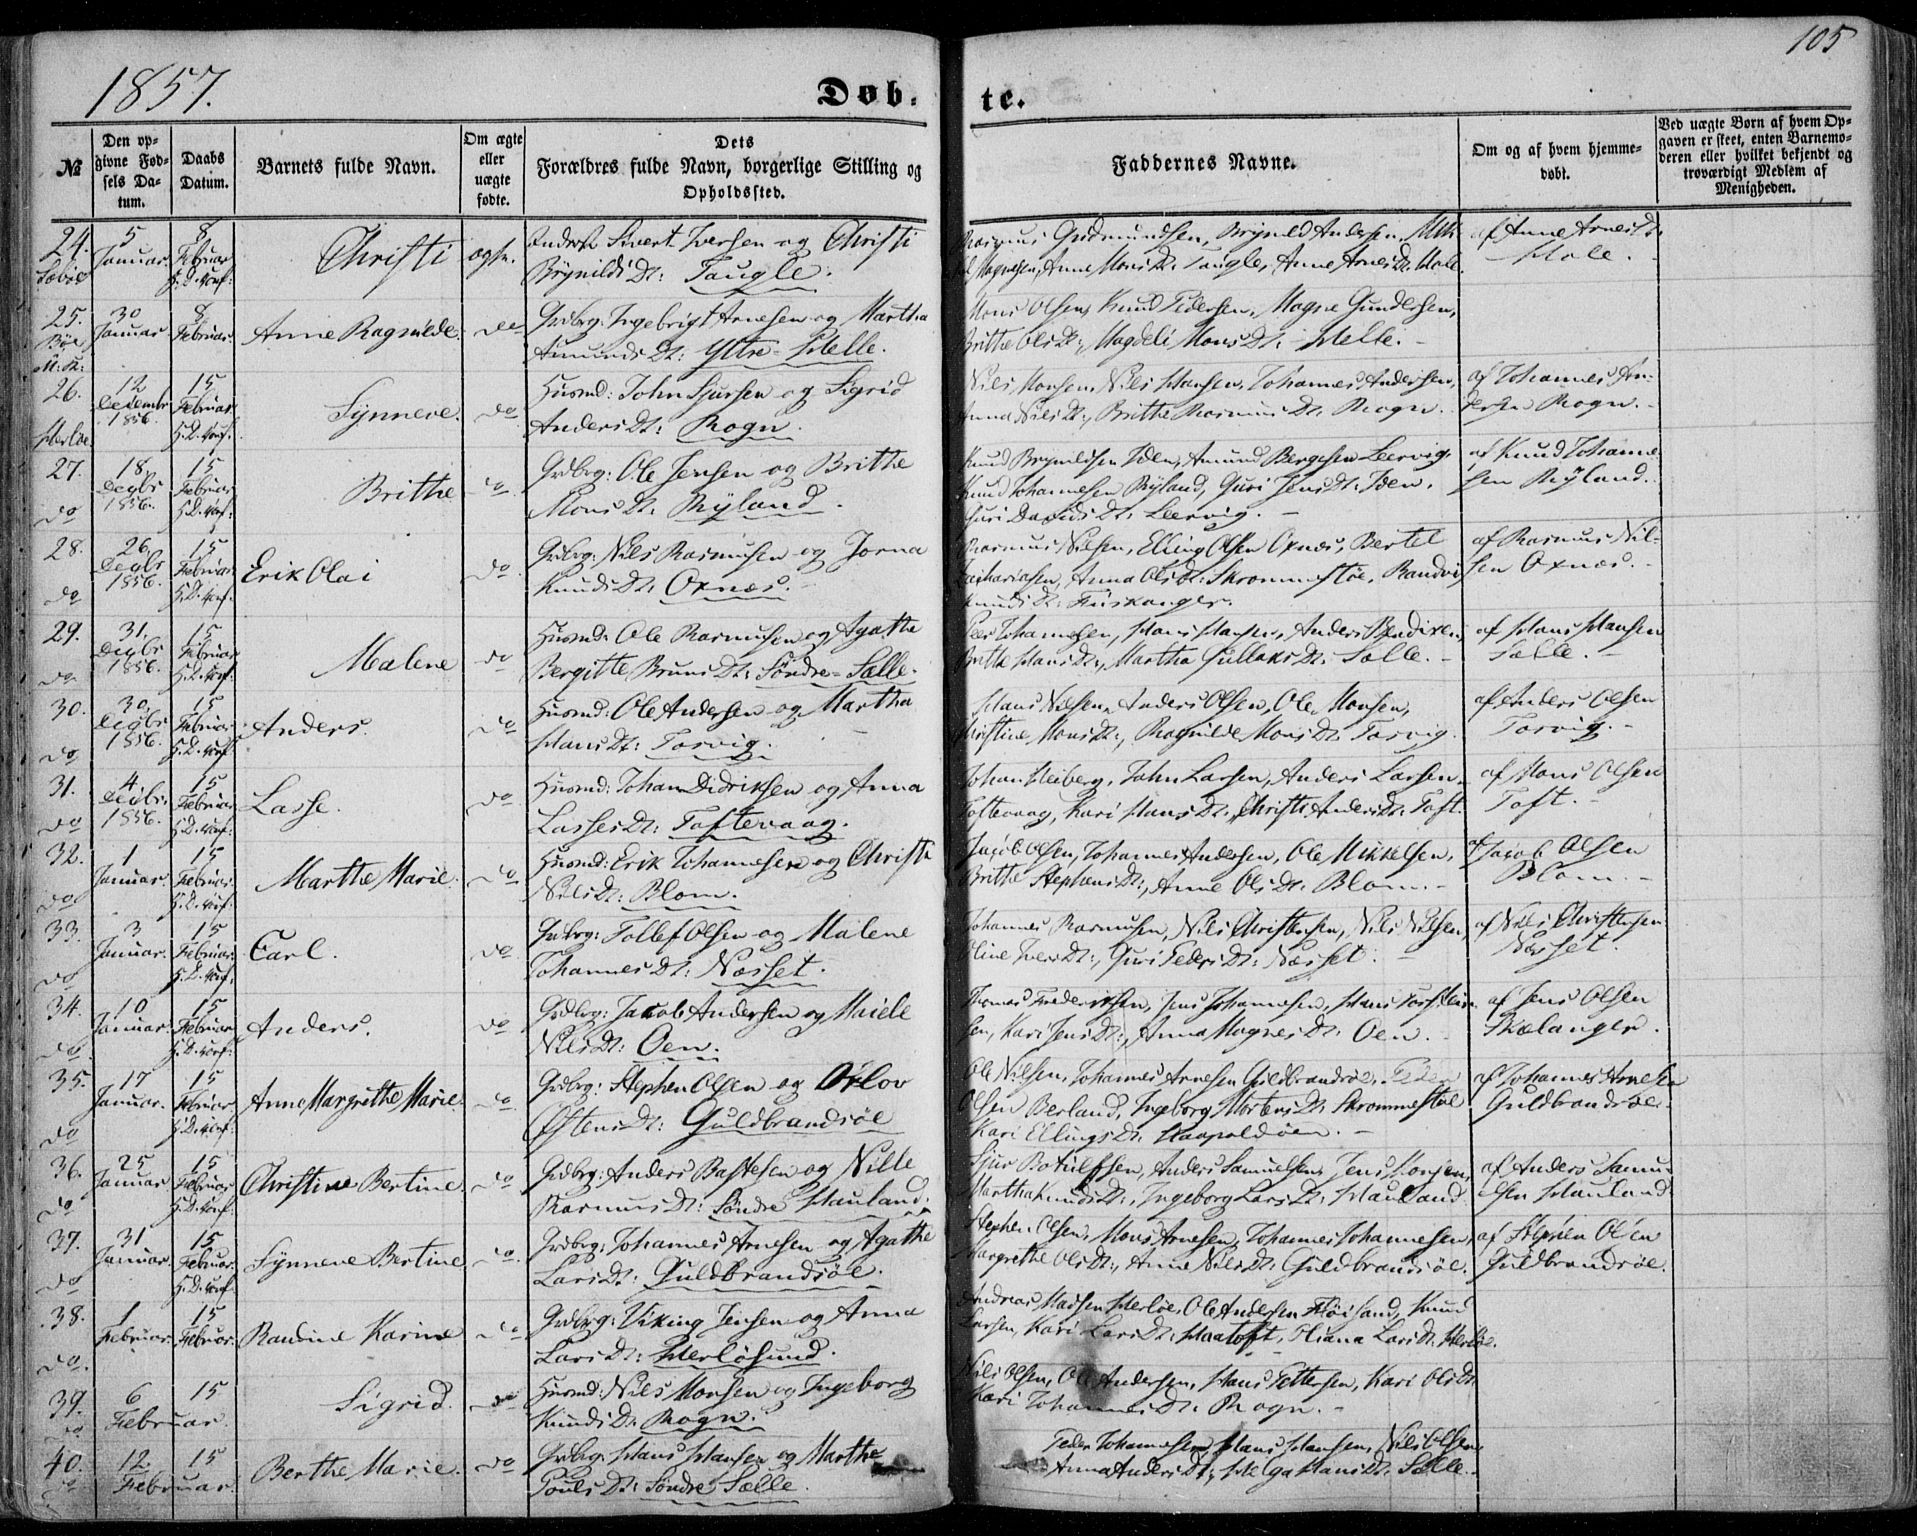 1857.
Døb-
te.
105
№
Den op-
givne Fød-
sels Da-
tum.
Daabs
Datum.
Barnets fulde Navn.
Om ægte
eller
uægte
fødte.
Dets
Forældres fulde Navn, borgerlige Stilling og
Opholdssted.
Faddernes Navne.
Om og af hvem hjemme-
døbt.
Ved uægte Børn af hvem Op-
gaven er skeet, enten Barnemo-
deren eller hvilket bekjendt og
troværdigt Medlem af
Menigheden.
24. 5 Januar. 8 Februar H. D. conf: Christi ægte. Sivert Iversen og Christi
Brynilds Dt: Taugle.
Rasmus Gudmundsen, Brynild Andersen,
Magnesen, Anne Mons Dt. Taugle, Anne Arnes Dt.
af Anne Arnes Dt.
25. 30 Januar 8 Februar Anne Ragnilde do Grdbrg: Ingebrigt Arnesen og Martha
Amunds Dt: Ytre-Melle.
Mons Olsen, Knud Pedersen, Magne Gundersen,
Brithe Ols Dt., Magdeli Mons Dt. Melle.
26. Herløe 12 Decembr 1856. 15 Februar H. D. conf: Synneve. do Husmd: John Sjursen og Sigrid
Anders Dt: Rogn.
Nils Monsen, Nils Hansen, Johannes Andersen,
Anna Nils Dt., Brithe Rasmus Dt. Rogn.
af Johannes An-
dersen Rogn.
27. do 18 Decbr 1856. 15 Februar H. D. conf: Brithe do. Grdbrg: Ole Jensen og Brithe
Mons Dt: Ryland.
Knud Brynildsen Iden, Amund Bergesen Leervig,
Knud Johannesen Ryland, Guri Jens Dt. Iden,
Guri Davids Dt. Leervig.
af Knud Johanne-
sen Ryland.
28. do 26 Decbr 1856. 15 Februar H. D. conf: Erik Olai do. Grdbrg: Nils Rasmusen og Jorna
Knuds Dt: Oxnæs.
Rasmus Nilsen, Elling Olsen Oxnæs, Bertel
Zachariasen, Anna Ols Dt. Skrommestøe, Randvi
Knuds Dt. Fuskanger.
af Rasmus Nil-
sen Oxnæs.
29. do 31 Decbr 1856. 15 Februar H. D. conf: Malene do Husmd: Ole Rasmusen og Agathe
Bergitte Bruns Dt: Søndre-Sælle.
Peer Johannesen, Hans Hansen, Anders Bendixen,
Brithe Hans Dt., Martha Gullaks Dt. Sælle.
af Hans Hansen
Sælle.
30. do 30 Decbr 1856. 15 Februar H. D. conf: Anders. do Husmd: Ole Andersen og Martha
Hans Dt: Torvig.
Hans Nilsen, Anders Olsen, Ole Monsen,
Christine Mons Dt., Ragnilde Mons Dt. Torvig.
af Anders Olsen
Torvig.
31. do 4 Decbr. 1856. 15 Februar H. D. conf: Lasse. do Husmd: Johan Didriksen og Anna
Lasses Dt: Toftevaag.
Johan Heiberg, John Larsen, Anders Larsen
Toftevaag, Kari Hans Dt., Christi Anders Dt. Toft.
af Mons Olsen
Toft.
32. do 1 Januar. 15 Februar H. D. conf: Marthe Marie. do Husmd: Erik Johannesen og Christi
Nils Dt: Blom.
Jacob Olsen, Johannes Andersen, Ole Mikkelsen,
Brithe Stephens Dt., Anne Ols Dt. Blom.
af Jacob Olsen
Blom.
33. do 3 Januar. 15 Februar H. D. conf: Carl. do Grdbrg: Tollef Olsen og Malene
Johannes Dt: Næsset.
Johannes Rasmusen, Nils Christensen, Nils Nilsen,
Oline Ivers Dt., Guri Peders Dt. Næsset.
af Nils Christensen
Næsset.
34. do. 10 Januar. 15 Februar H. D. conf: Anders. do Grdbrg: Jacob Andersen og Maiele
Nils Dt: Oen.
Thomas Frederiksen, Jens Johannesen, Hans Torstein-
sen, Kari Jens Dt., Anna Magnes Dt. Oen.
af Jens Olsen
Skælanger.
35. do 17 Januar. 15 Februar H. D. conf: Anne Margrethe Marie do. Grdbrg: Stephen Olsen og Orlov
Østens Dt: Guldbrandsøe
Ole Nilsen, Johannes Arnesen Guldbrandsøe, Peder
Olsen Berland, Ingeborg Mortens Dt. Skrommestøe
Kari Ellings Dt.
af Johannes Arnesen
Guldbrandsøe.
36. do 25 Januar. 15 Februar H. D. conf: Christine Bertine do Grdbrg: Anders Bastesen og Nille
Rasmus Dt: Søndre Hauland.
Sjur Botulfsen, Anders Samuelsen, Jens Monsen,
Martha Knuds Dt., Ingeborg Lars Dt. Hauland.
af Anders Samu-
elsen Hauland
37. do 31 Januar. 15 Februar. H. D. conf: Synneve Bertine do. Grdbrg: Johannes Arnesen og Agathe
Lars Dt: Guldbrandsøe.
Stephen Olsen, Mons Arnesen, Johannes Johannesen,
Margrethe Ols Dt., Anne Nils Dt. Guldbrandsøe.
af Stephen Olsen
Guldbrandsøe.
38. do. 1 Februar. 15 Februar. Randine Karine do Grdbrg: Viking Jensen og Anna
Lars Dt: Herløsund.
Andreas Madsen Herløe, Ole Andersen Fløisand, Knud
Larsen, Kari Lars Dt. Haatoft, Oliana Lars Dt. Herløe.
39. do 6 Februar. 15 Sigrid. do Husmd: Nils Monsen og Ingeborg
Knuds Dt: Rogn.
Nils Olsen, Ole Andersen, Hans Pettersen, Kari Ols Dt.
Kari Johannes Dt. Rogn.
40. do 12 Februar. 15 Berthe Marie. do Grdbrg: Hans Hansen og Marthe
Pouls Dt: Søndre Sælle.
Peder Johannesen, Hans Hansen, Nils Olsen,
Anna Anders Dt., Helga Hans Dt. Sælle.